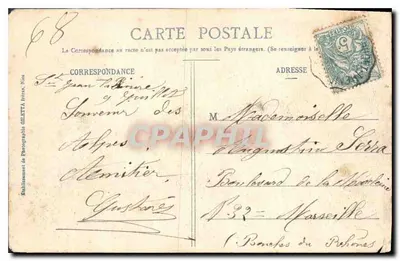 68
CARTE POSTALE
La Correspondance au recto n'est pas acceptée par tous les Pays étrangers. (Se renseigner à la
CORRESPONDANCE
ADRESSE
St Jean
Souvenir des
Alpes
Mademoiselle
Augustine Serra
Boulevard de la Madeleine
N° 32 = Marseille
(Bouches du Rhône)
Etablissement de Photographie GILETTA frères, Nice
CPAPHIL